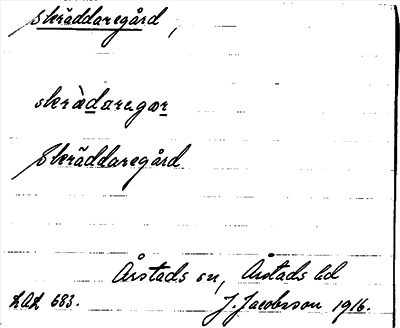 Skräddaregård,
skrädaregar
Skräddaregård
Årstads sn, Årstads hd
LAL 683. J. Jacobsson 1916.